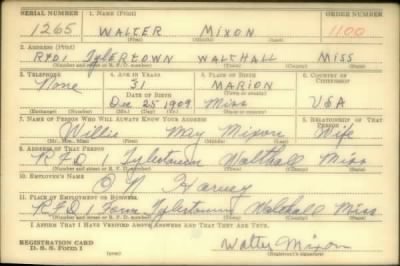 SERIAL NUMBER 1. NAME (Print) ORDER NUMBER
1265 WALTER MIXON 1100
2. ADDRESS (Print)
RFD1 TYLERTOWN WALTHALL MISS
(Number and street or R. F. D. number) (Town) (County) (State)
3. TELEPHONE 4. AGE IN YEARS 5. PLACE OF BIRTH 6. COUNTRY OF CITIZENSHIP
None 31 MARION
DATE OF BIRTH
Dec 25 1909 Miss USA
(Exchange) (Number) (Mo.) (Day) (Yr.) (State or country)
7. NAME OF PERSON WHO WILL ALWAYS KNOW YOUR ADDRESS 8. RELATIONSHIP OF THAT PERSON
Willie May Mixon Wife
9. ADDRESS OF THAT PERSON
RFD 1 Tylertown Walthall Miss
(Number and street or R. F. D. number) (Town) (County) (State)
10. EMPLOYER'S NAME
Harvey
11. PLACE OF EMPLOYMENT OR BUSINESS
RFD 1 Farm Tylertown Walthall Miss
(Number and street or R. F. D. number) (Town) (County) (State)
I AFFIRM THAT I HAVE VERIFIED ABOVE ANSWERS AND THAT THEY ARE TRUE.
REGISTRATION CARD
D. S. S. Form 1
Walter Mixon
(Registrant's signature)